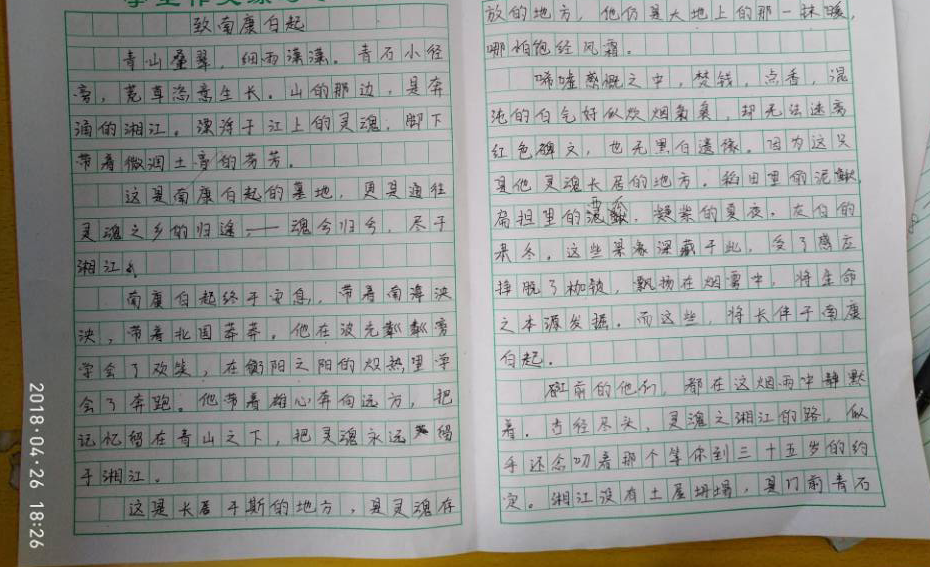 致南康白起
青山叠翠，细雨潇潇。青石小径
旁，荒草恣意生长。山的那边，是奔
涌的湘江。漂浮于江上的灵魂，脚下
带着微润土膏的芳芳。
这是南康白起的墓地，更是通往
灵魂之乡的归途——魂兮归兮，尽于
湘江。
南康白起终于安息，带着南海泱
泱，带着北国莽莽。他在波光粼粼旁
学会了欢笑，在衡阳之阳的炽热里学
会了奔跑。他带着雄心奔向远方，把
记忆留在青山之下，把灵魂永远留
于湘江。
这是长居于斯的地方，是灵魂存
放的地方，他仍是大地上的那一抹暖，
哪怕饱经风霜。
唏嘘感慨之中，焚钱，点香，混
沌的白气好似炊烟袅袅，却无法迷离
红色碑文，也无黑白遗像。因为这只
是他灵魂长居的地方。稻田里的泥鳅，
扁担里的西瓜，凝紫的夏夜，灰白的
暮冬。这些景象深藏于此，受了感应
挣脱了枷锁，飘扬在烟雾中，将生命
之本源发掘。而这些，将长伴于南康
白起。
碑前的他们，都在这烟雨中静默
着。古径尽头，灵魂之湘江的路，似
乎还念叨着那个等你到三十五岁的约
定。湘江没有土屋坍塌，是门前青石
2018·04·26 18:26